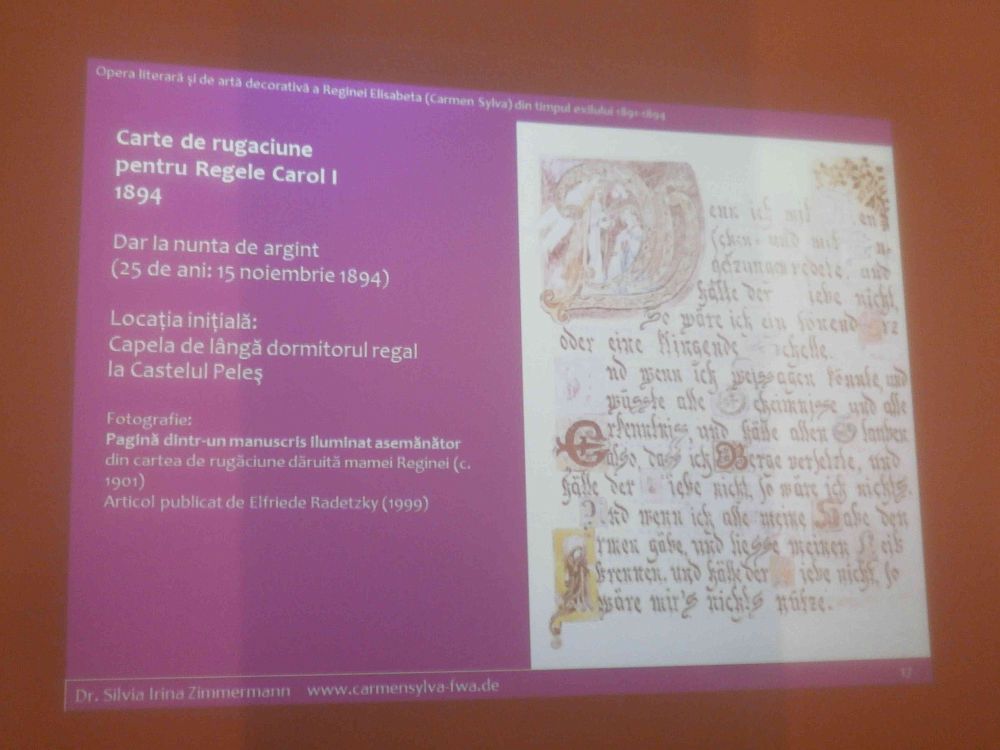 Opera literară și de artă decorativă a Reginei Elisabeta (Carmen Sylva) din timpul exilului 1891-1894
Carte de rugaciune
pentru Regele Carol I
1894
Dar la nunta de argint
(25 de ani: 15 noiembrie 1894)
Locația inițială:
Capela de lângă dormitorul regal
la Castelul Peleş
Fotografie:
Pagină dintr-un manuscris iluminat asemănător
din cartea de rugăciune dăruită mamei Reginei (c.
1901)
Articol publicat de Elfriede Radetzky (1999)
enn ich mit en
schen und mit n-
redete, und
hätte der iebe nicht,
So wäre ich ein tönend rz
oder eine klingende chelle.
nd wenn ich weissagen könnte, und
wüsste alle Geheimnisse und alle
Erkenntniss, und hätte allen Glauben
also, dass ich Berge versetzte, und
hätte der iebe nicht, so wäre ich nichts.
Und wenn ich alle meine Habe den
Armen gäbe, und liesse meinen Leib
brennen, und hätte der iebe nicht, so
wäre mir's nichts nütze.
Dr. Silvia Irina Zimmermann www.carmensylva-fwa.de
17